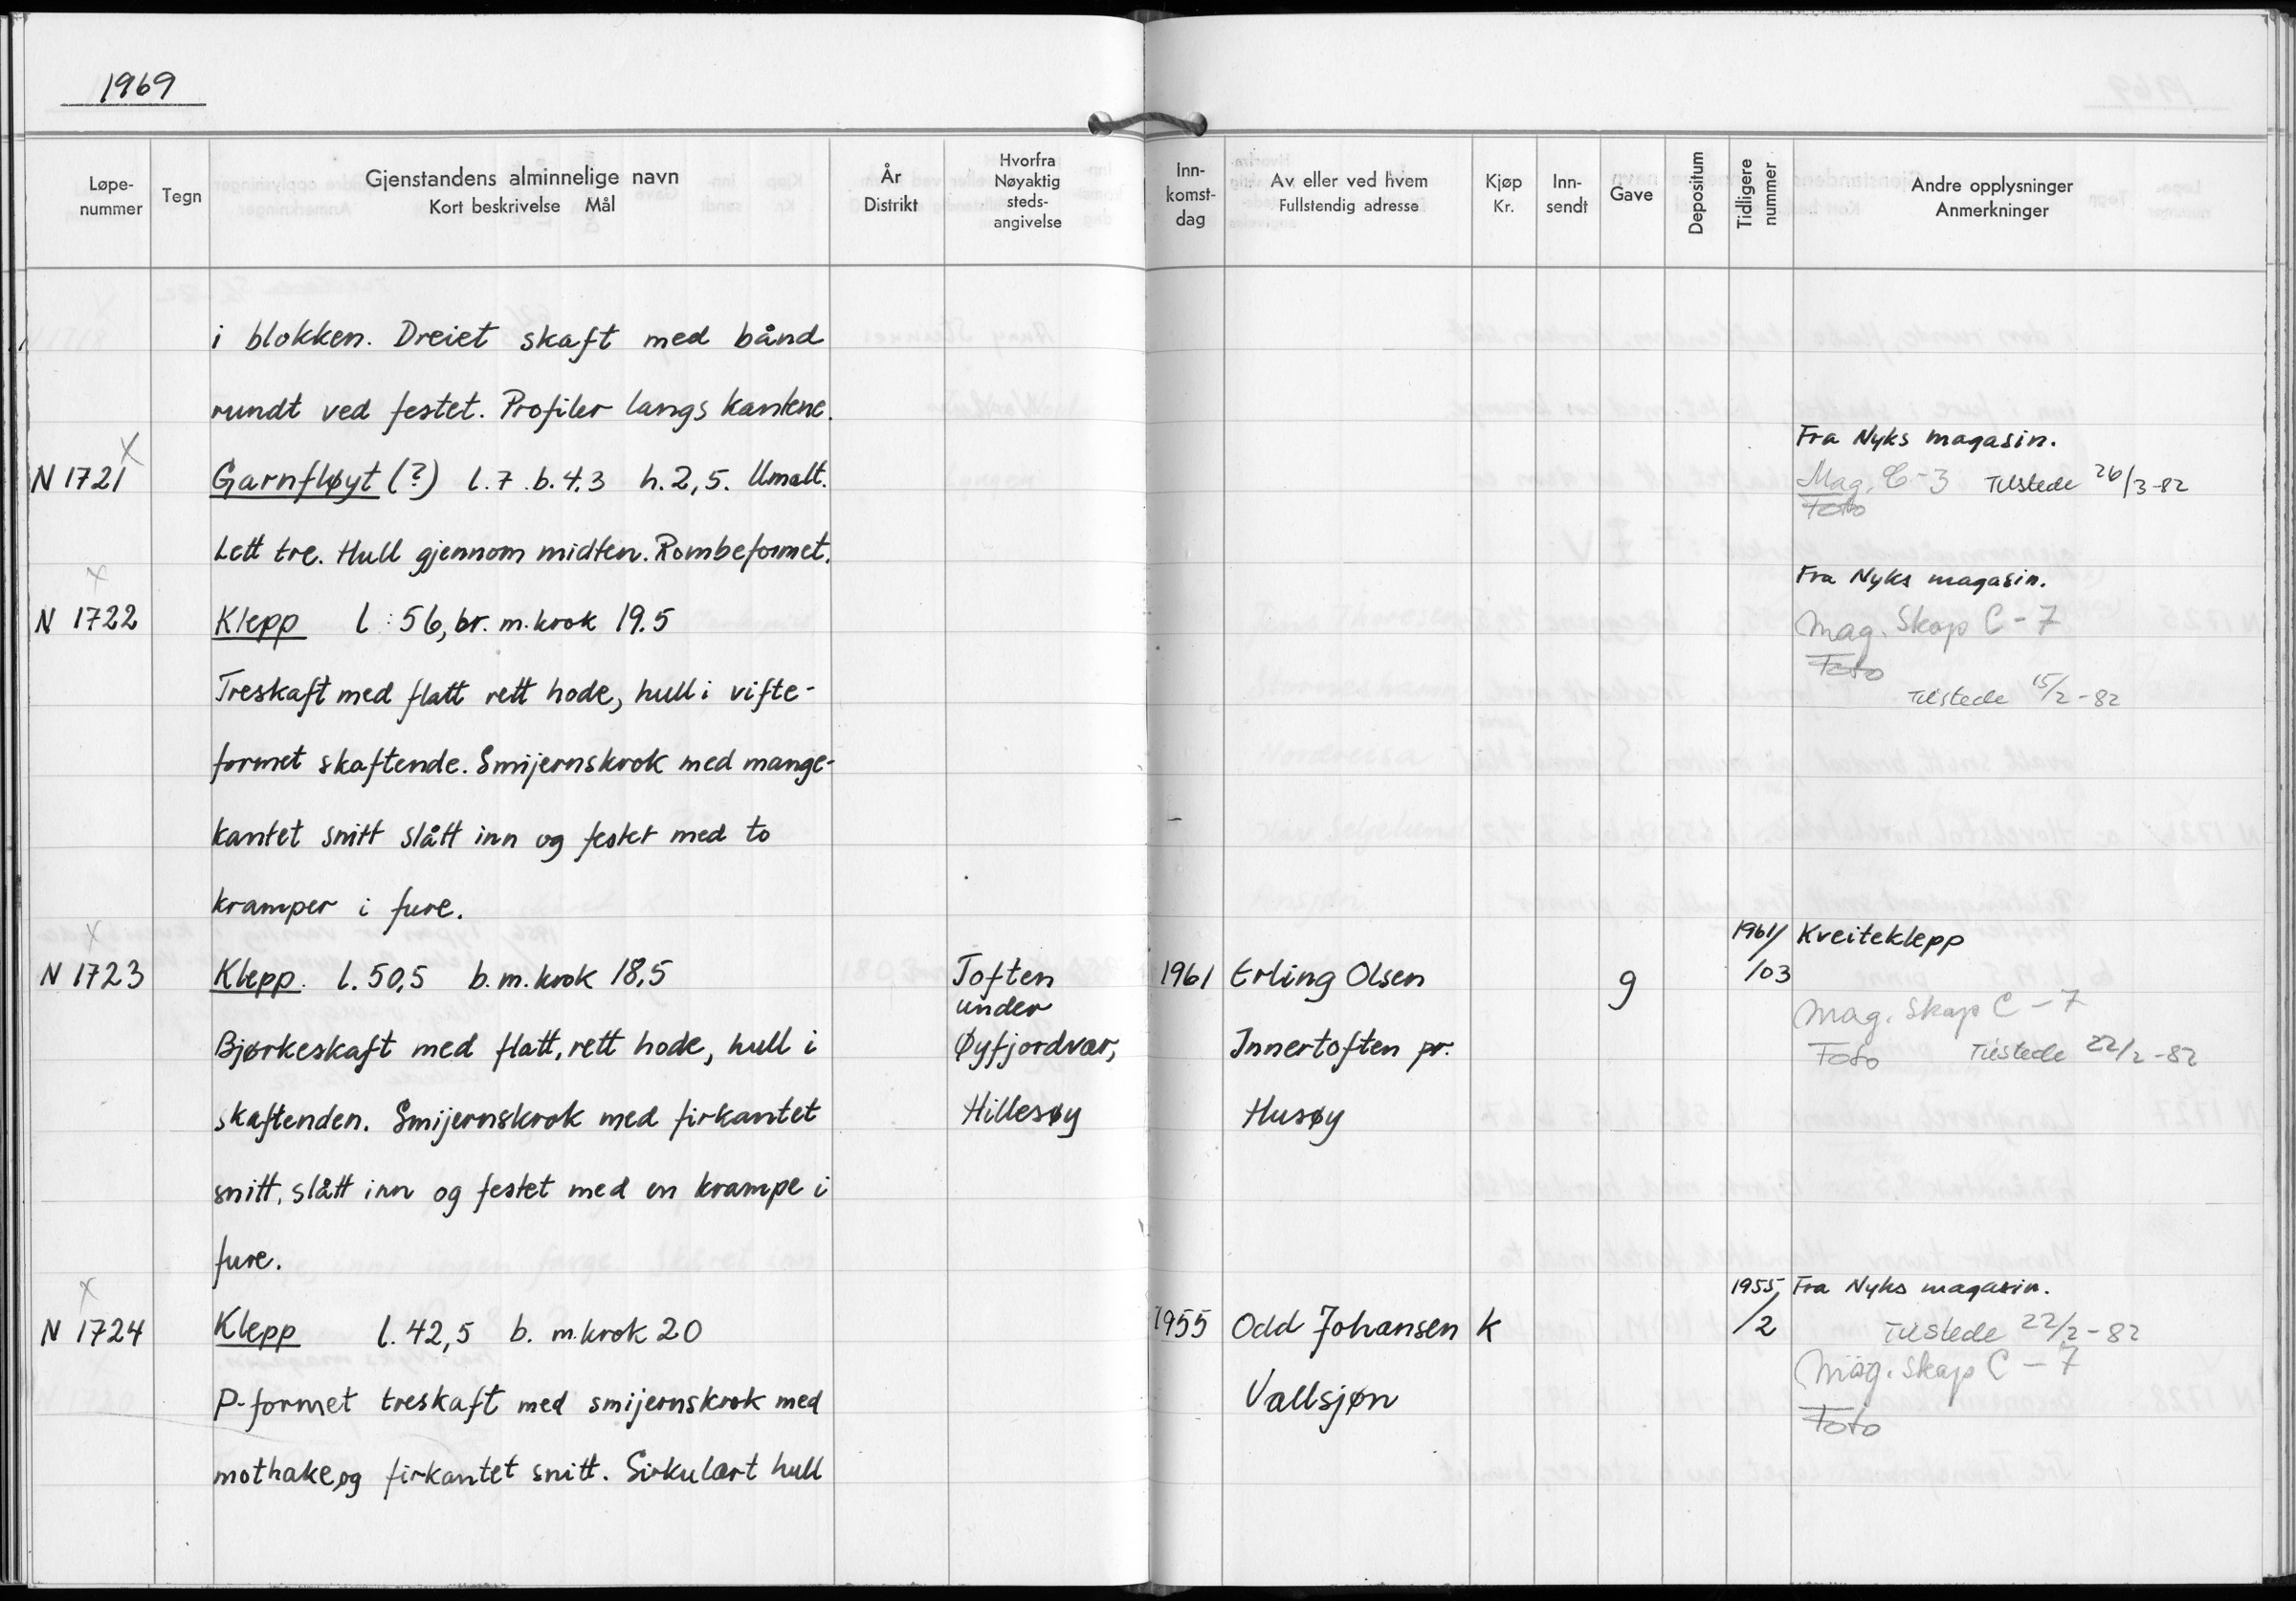 1969
Løpe-
nummer
Tegn
Gjenstandens alminnelige navn
Kort beskrivelse Mål
År
Distrikt
Hvorfra
Nøyaktig
steds-
angivelse
Inn-
komst-
dag
Av eller ved hvem
Fullstendig adresse
Kjøp
Kr.
Inn-
sendt
Gave
Depositum
Tidligere
nummer
Andre opplysninger
Anmerkninger
i blokken. Dreiet skaft med bånd
rundt ved festet. Profiler langs kantene.
x
N 1721 Garnfløyt (?) l.7 .b.4,3 h.2,5. Umalt.
Fra Nyks magasin.
Mag. C-3 Tilstede 26/3-82
Foto
Lett tre. Hull gjennom midten. Rombeformet.
x
N 1722 Klepp l : 56, br. m. krok 19.5
Fra Nyks magasin.
Mag. Skap C-7
Foto
Tilstede 15/2-82
Treskaft med flatt rett hode, hull i vifte-
formet skaftende. Smijernskrok med mange-
kantet snitt slått inn og festet med to
kramper i fure.
x
N 1723 Klepp. l. 50,5 b. m. krok 18,5
Toften
under
Øyfjordvær,
Hillesøy
1961 Erling Olsen
Innertoften pr.
Husøy
g
1961/
/03
Kveiteklepp
Mag. Skap C-7
Foto Tilstede 22/2-82
Bjørkeskaft med flatt, rett hode, hull i
skaftenden. Smijernskrok med firkantet
snitt, slått inn og festet med en krampe i
fure.
x
N 1724 Klepp l. 42,5 b. m. krok 20
1955 Odd Johansen K
Vallsjøn
1955,
/2
Fra Nyks magasin.
Tilstede 22/2-82
Mag. Skap C-7
Foto
P-formet treskaft med smijernskrok med
mothake, og firkantet snitt. Sirkulært hull